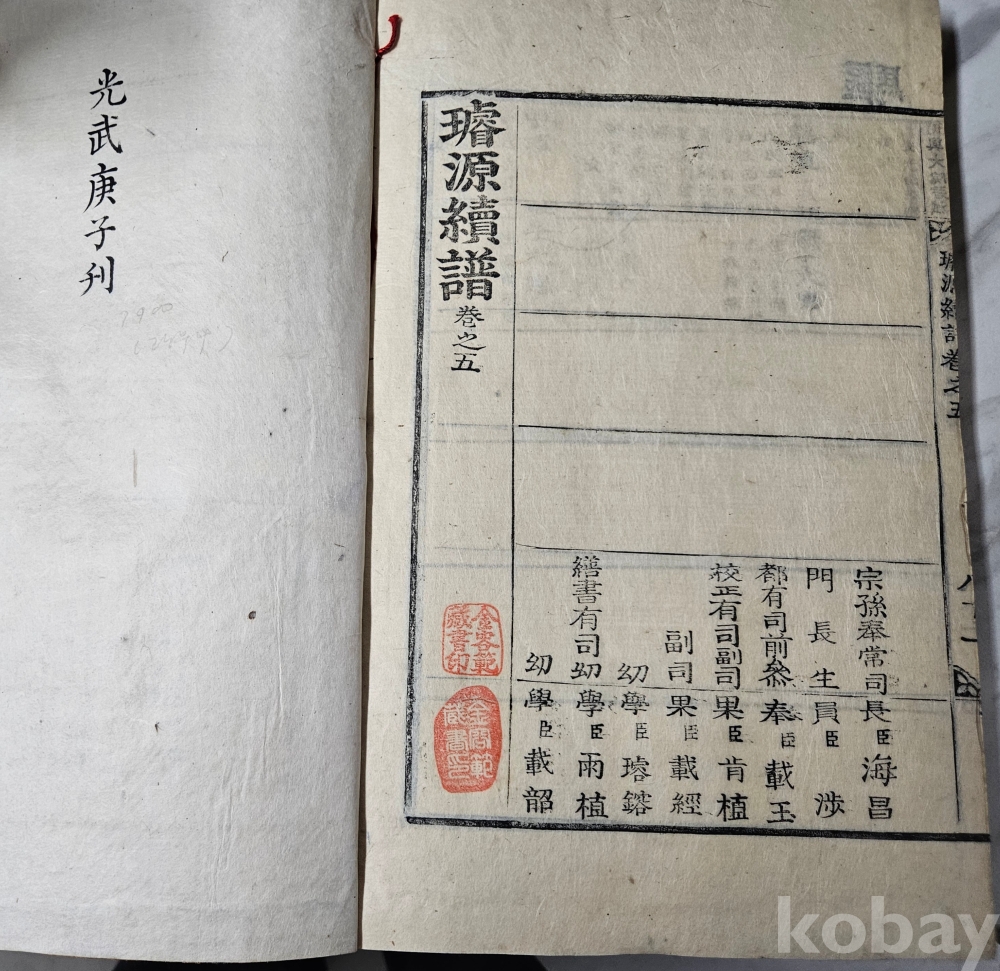 光武庚子刊
璿源續譜卷之五
宗孫奉常司長臣海昌
門長生員臣渉
都有司前叅奉臣載玉
校正有司副司果臣肯植
副司果臣載經
幼學臣璿鎔
繕書有司幼學臣雨植
幼學臣載韶
璿源續譜卷之五
金容範藏書印
藏書印
kobay